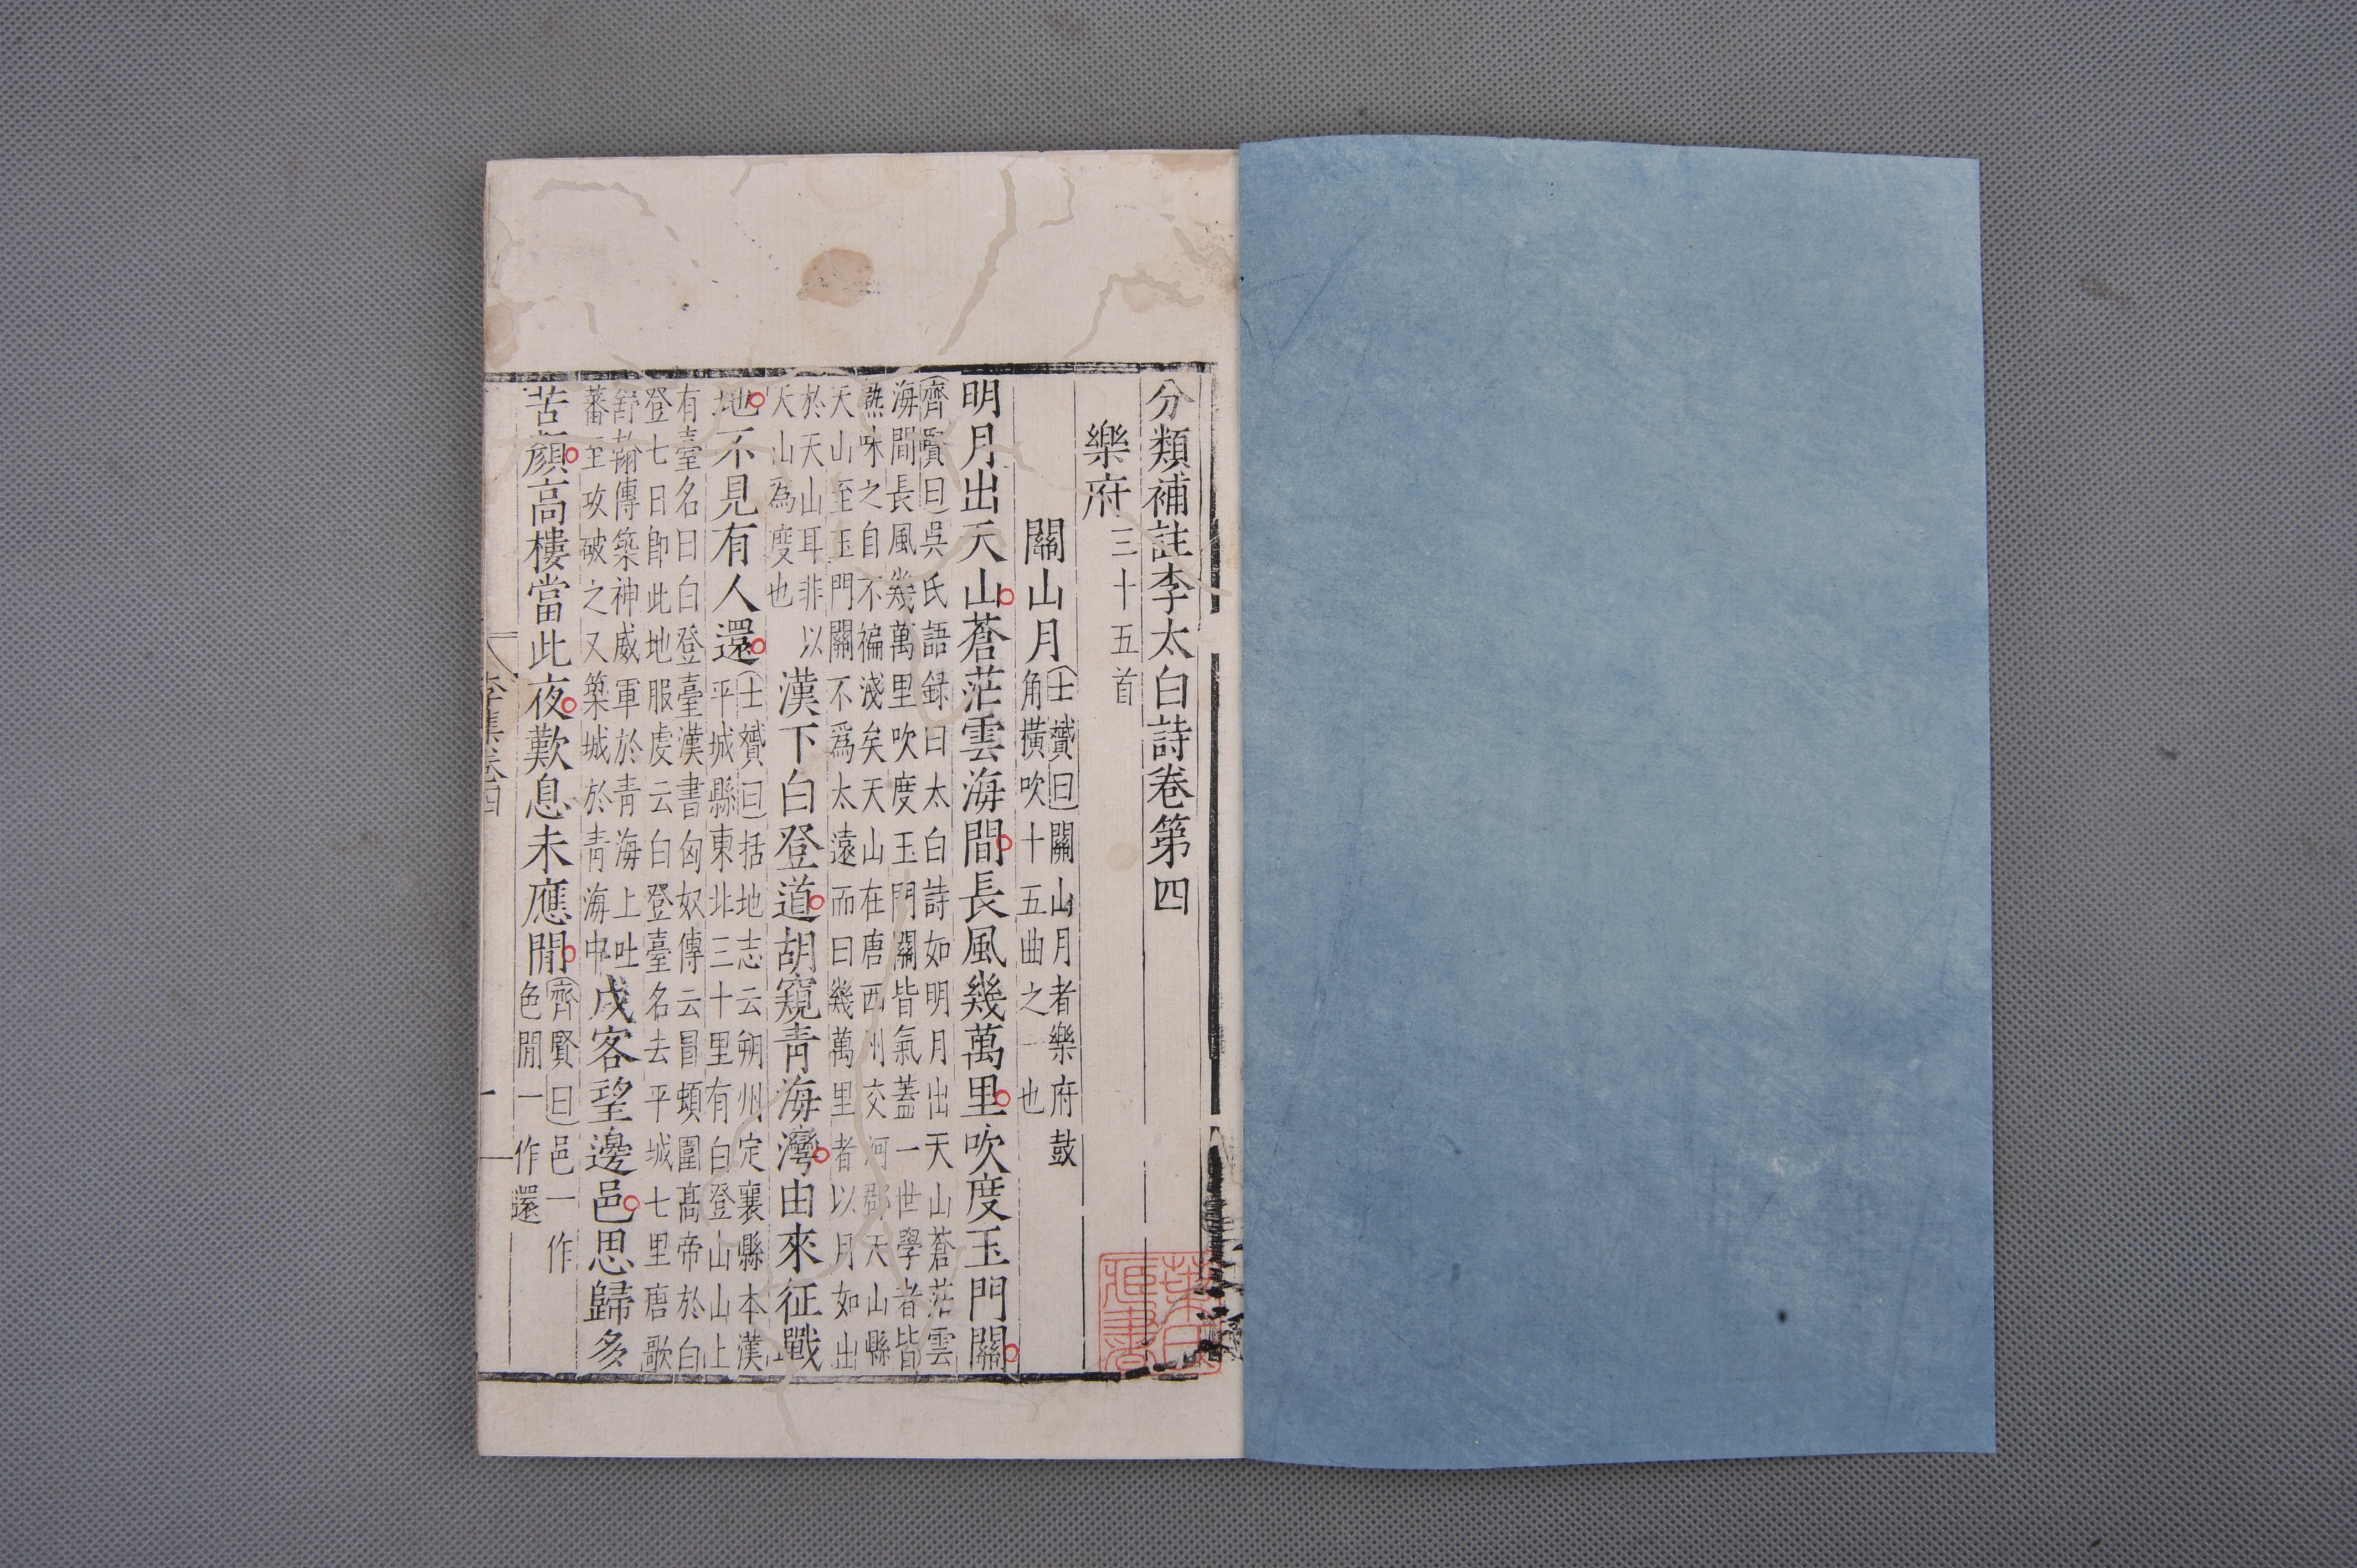 分類補註李太白詩卷第四
樂府三十五首
關山月
士贇曰關山月者樂府鼓
角橫吹十五曲之一也
明月出天山蒼茫雲海間長風幾萬里吹度玉門關
齊賢曰吳氏語録曰太白詩如明月出天山蒼茫雲
海間長風幾萬里吹度玉門關皆氣蓋一世學者皆
熟味之自不褊淺矣天山在唐西州交河郡天山縣
天山至玉門關不爲太遠而曰幾萬里者以月如出
於天山耳非以
天山為度也
漢下白登道胡窺靑海灣由來征戰
地不見有人還
士贇曰括地志云朔州定襄縣本漢
平城縣東北三十里有白登山山上
有臺名曰白登臺漢書匈奴傳云冒頓圍髙帝於白
登七日卽此地服虔云白登臺名去平城七里唐歌
舒翰傳築神威軍於青海上吐
蕃至攻破之又築城於青海中
戍客望邊邑思歸多
苦顏高樓當此夜歎息未應閒
齊賢曰邑一作
色閒一作還
李集卷四
一
葉氏
藏書